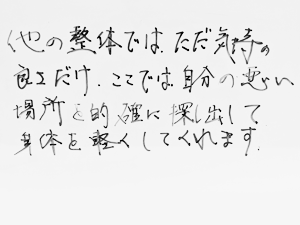 他の整体では、ただ気持の
良さだけ、ここでは自分の悪い
場所を的確に探し出して
身体を軽くしてくれます。